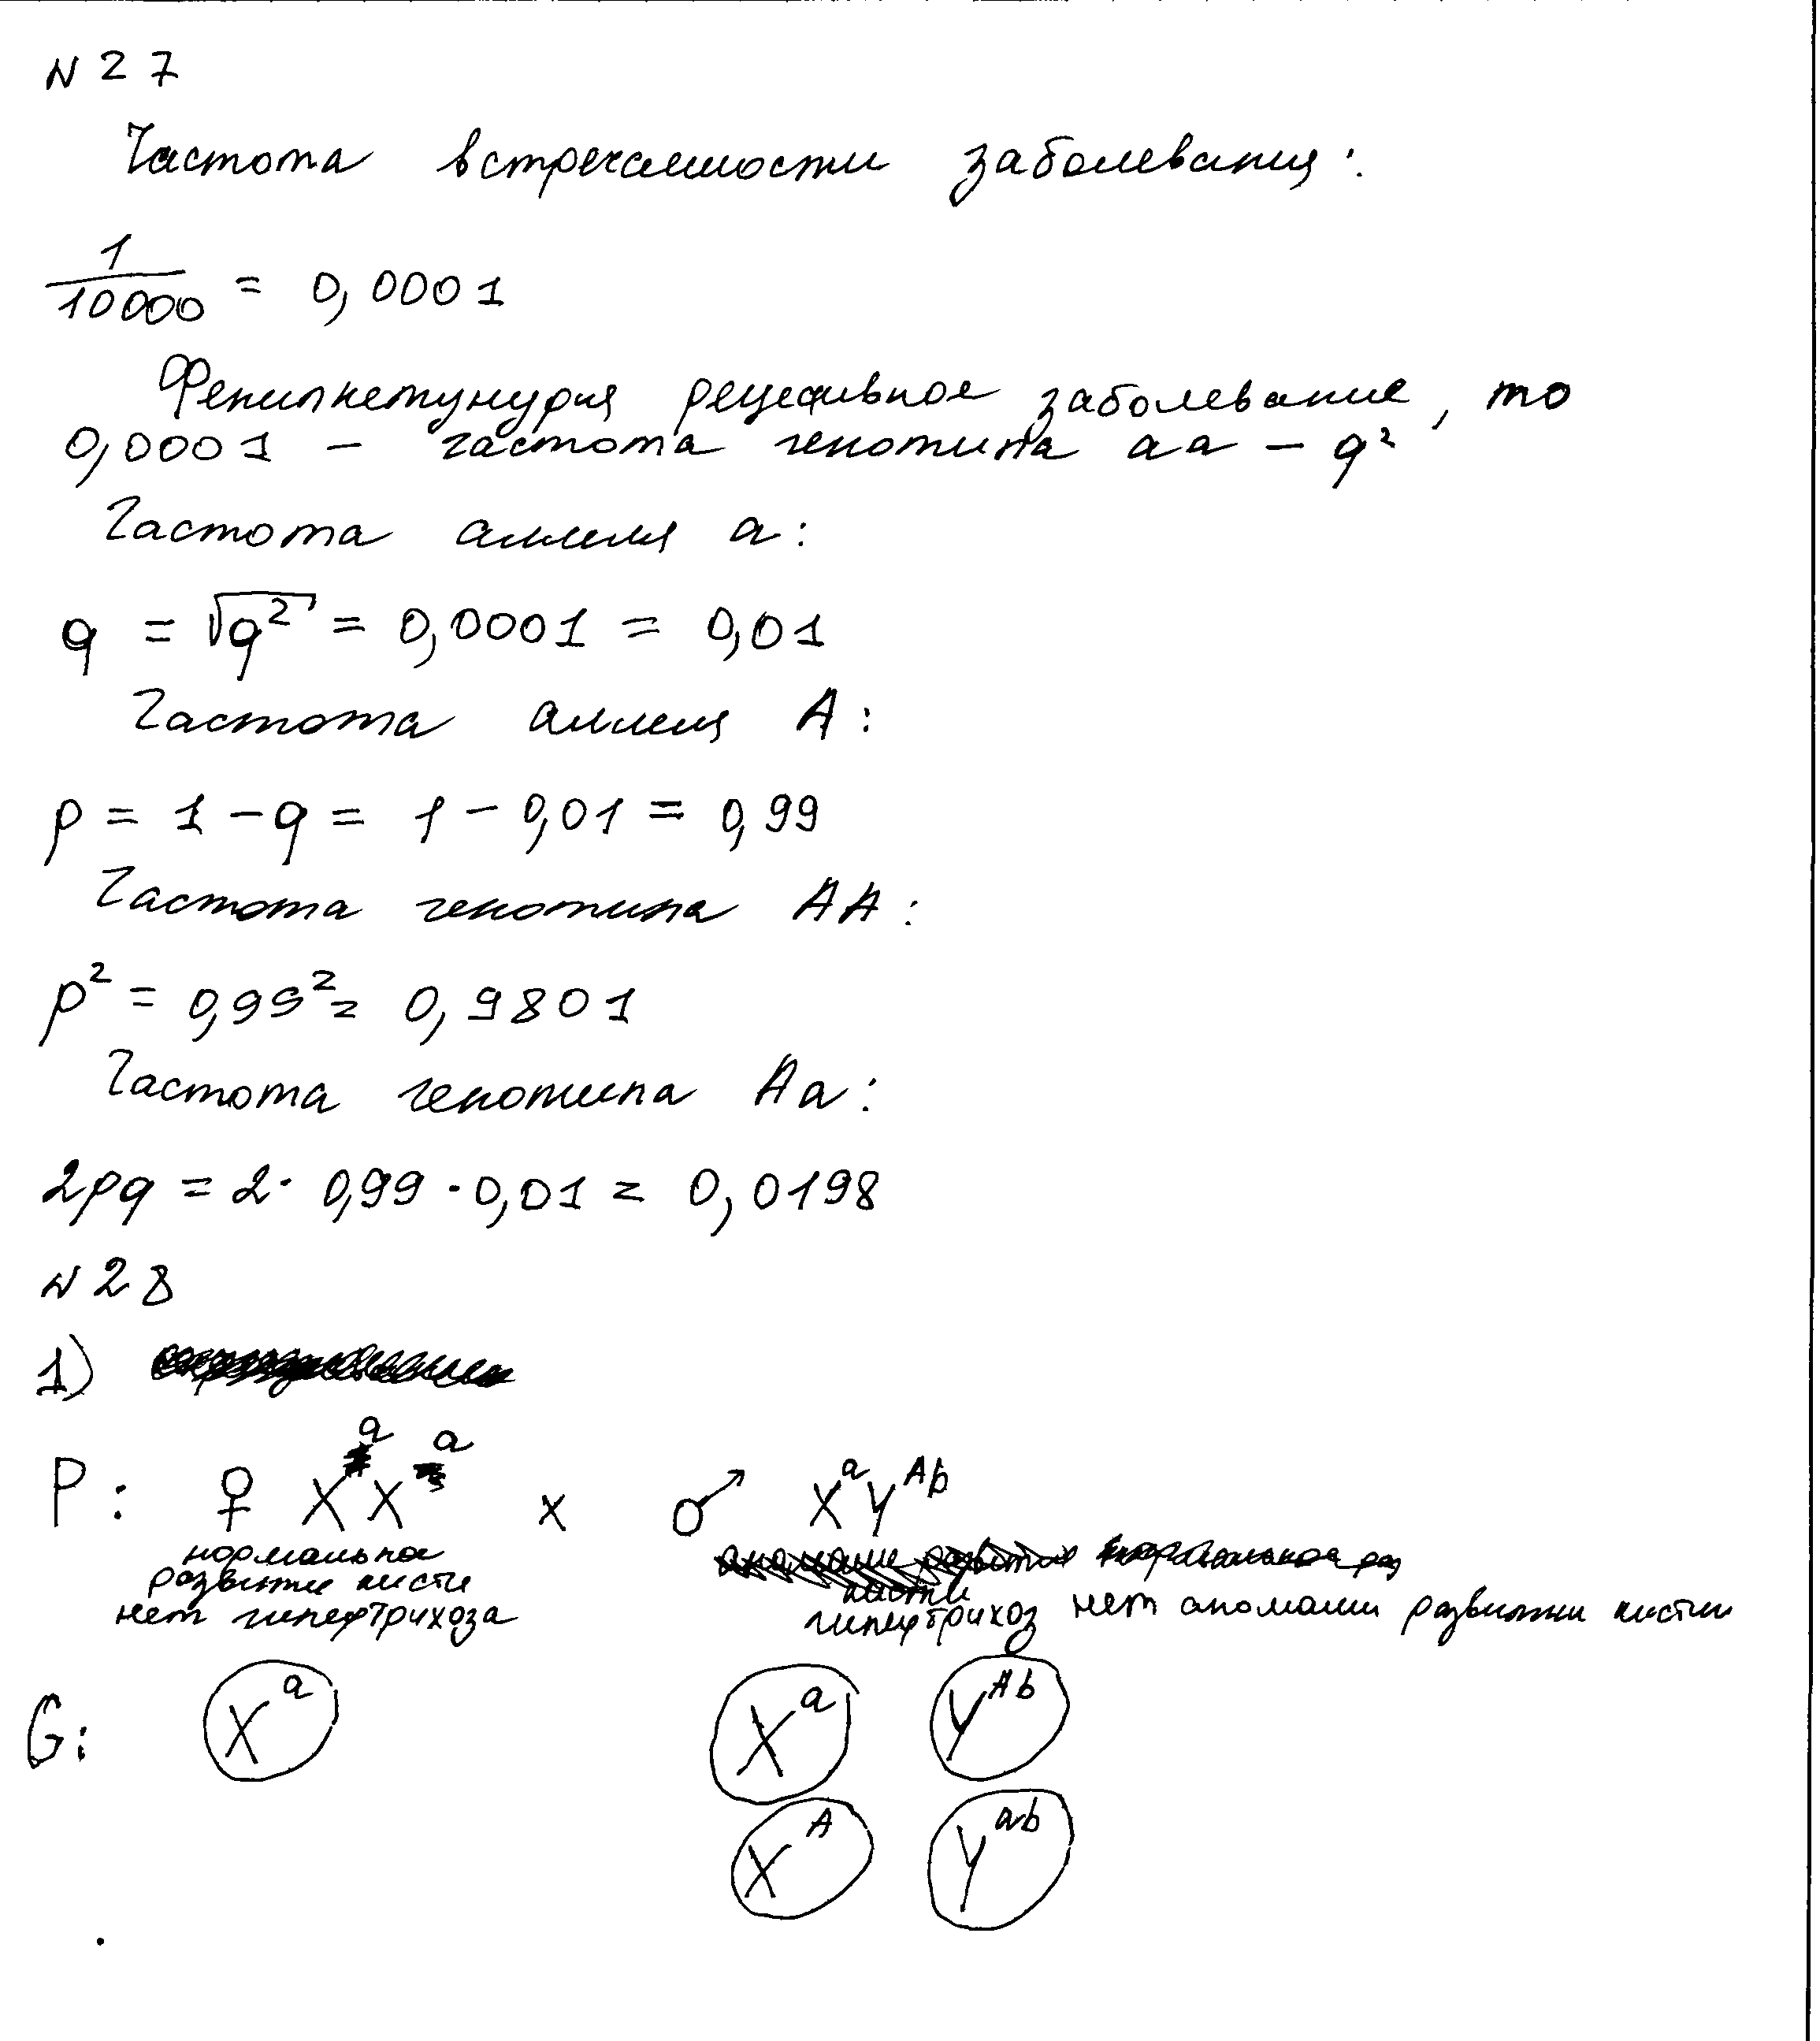 N 27
Частота встречаемости заболевания:
1/10000 = 0,0001
Фенилкетунурия рецесивное заболевание, то
0,0001 – частота генотипа aa – q²
Частота аллеля a:
q = √q² = 0,0001 = 0,01
Частота аллеля A:
p = 1 – q = 1 – 0,01 = 0,99
Частота генотипа AA:
p² = 0,99² = 0,9801
Частота генотипа Aa:
2pq = 2 · 0,99 · 0,01 = 0,0198
N 28
1)
P: ♀ XᵃXᵃ x ♂ XᵃYᴬᵇ
нормальное
развитие кисти
нет гипертрихоза
гипертрихоз нет аномалии развития кисти
G: Xᵃ Xᵃ Yᴬᵇ
Xᴬ Yᵃᵇ